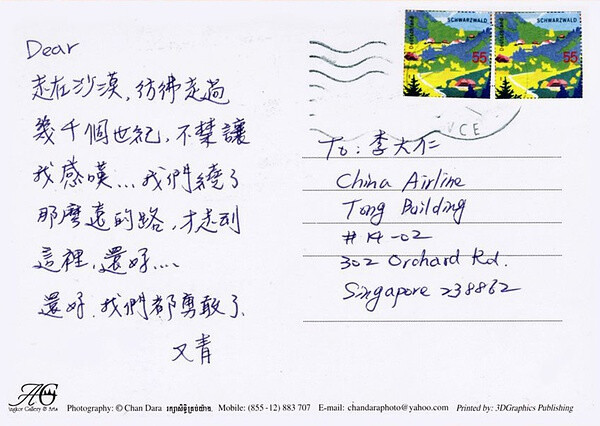 Dear
走在沙漠，彷彿走過
幾千個世紀，不禁讓
我感嘆...我們繞了
那麼遠的路，才走到
這裡，還好....
還好，我們都勇敢了、
又青
SCHWARZWALD
DEUTSCHLAND
55
SCHWARZWALD
DEUTSCHLAND
55
VCE
To: 李大仁
China Airline
Tong Building
# 14-02
302 Orchard Rd.
Singapore 238862
AG
Angkor Gallery & Arts
Photography: © Chan Dara រក្សាសិទ្ធិគ្រប់យ៉ាង. Mobile: (855 -12) 883 707 E-mail: chandaraphoto@yahoo.com Printed by: 3DGraphics Publishing